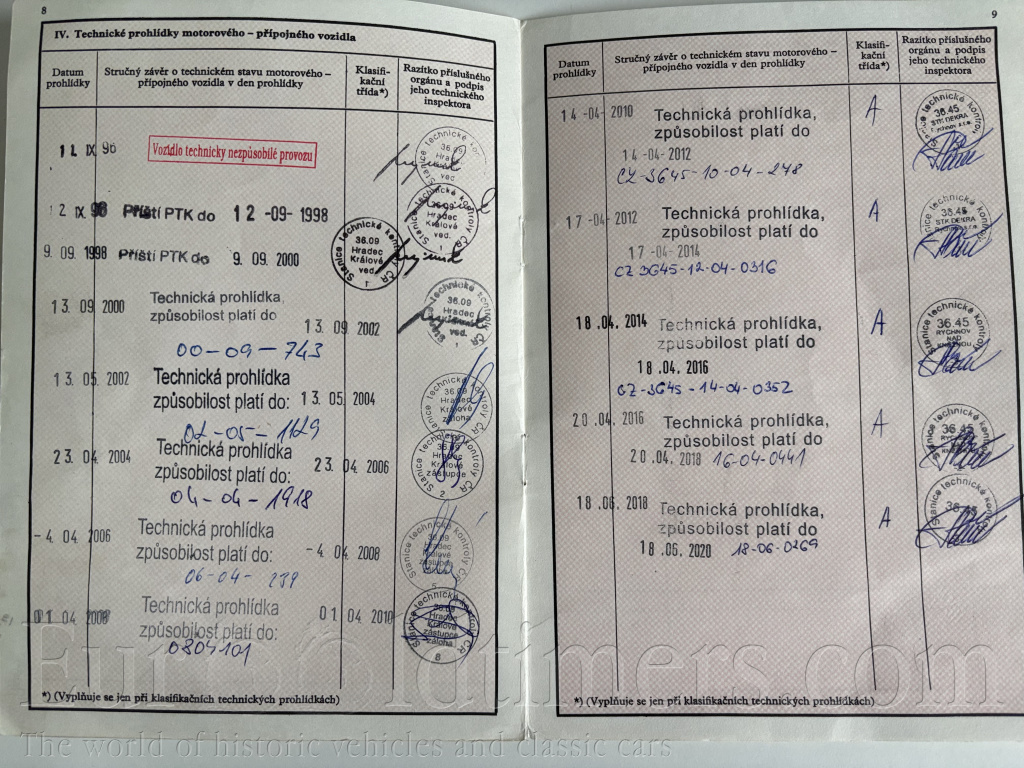 8
IV. Technické prohlídky motorového – přípojného vozidla
Datum prohlídky
Stručný závěr o technickém stavu motorového – přípojného vozidla v den prohlídky
Klasifi-
kační
třída*)
Razítko příslušného
orgánu a podpis
jeho technického
inspektora
11. IX. 96
Vozidlo technicky nezpůsobilé provozu
Stanice technické
36.09
Hradec
ved.
12 IX. 96 Příští PTK do 12 -09- 1998
Stanice technické kontroly ČR
36.09
Hradec
Králové
ved.
1
9. 09. 1998 Příští PTK do 9. 09. 2000
Stanice technické kontroly ČR
36.09
Hradec
Králové
ved.
1
13. 09. 2000 Technická prohlídka,
způsobilost platí do
13. 09. 2002
00-09-743
36.09
Hradec
ved.
1
13. 05. 2002 Technická prohlídka
způsobilost platí do: 13. 05. 2004
02-05-1129
Stanice technické kontroly ČR
36.09
Hradec
Králové
záloha
23. 04. 2004 Technická prohlídka
způsobilost platí do: 23. 04. 2006
04-04-1918
Hradec
Králové
zástupce
2
-4. 04. 2006 Technická prohlídka
způsobilost platí do: -4. 04. 2008
06-04-239
Stanice technické kontroly ČR
36.09
Hradec
Králové
zástupce
01. 04. 2008 Technická prohlídka
způsobilost platí do: 01. 04. 2010
0804101
Stanice technické kontroly ČR
36.09
Hradec
Králové
zástupce
záloha
8
*) (Vyplňuje se jen při klasifikačních technických prohlídkách)
9
Datum
prohlídky
Stručný závěr o technickém stavu motorového –
přípojného vozidla v den prohlídky
Klasifi-
kační
třída*)
Razítko příslušného
orgánu a podpis
jeho technického
inspektora
14 -04- 2010 Technická prohlídka,
způsobilost platí do
14 -04- 2012
CZ-3645-10-04-248
A
Stanice technické kontroly
36.45
STK DEKRA
17 -04- 2012 Technická prohlídka,
způsobilost platí do
17 -04- 2014
CZ 3645-12-04-0316
A
Stanice technické kontroly
36.45
STK DEKRA
18. 04. 2014 Technická prohlídka,
způsobilost platí do
18. 04. 2016
CZ-3645-14-04-0352
A
Stanice technické kontroly
36.45
RYCHNOV
NAD
KNĚŽNOU
20. 04. 2016 Technická prohlídka,
způsobilost platí do
20. 04. 2018 16-04-0441
A
Stanice technické kontroly
36.45
18. 06. 2018 Technická prohlídka,
způsobilost platí do
18. 06. 2020 18-06-0269
A
Stanice technické kontroly
36.45
*) (Vyplňuje se jen při klasifikačních technických prohlídkách)
EuroOldtimers.com
The world of historic vehicles and classic cars